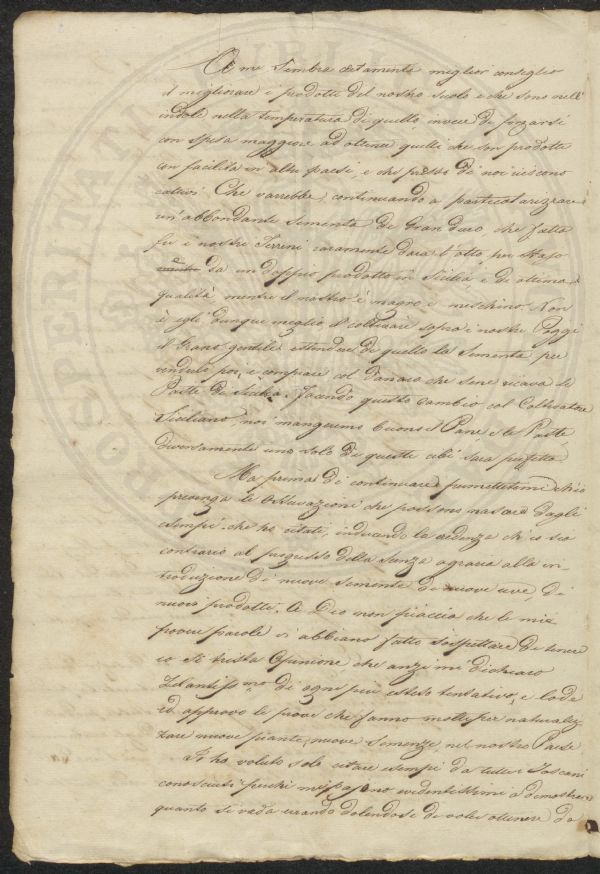 A me sembra certamente miglior consiglio
il migliorare i prodotti del nostro suolo e che sono nell'
indole nella temperatura di quello invece di forzarsi
con spesa maggiore ad ottener quelli che son prodotti
con facilità in altri paesi, e che presso di noi riescono
cattivi. Che varrebbe, continuando a particolarizzare
un'abbondante sementa di Gran duro, che fatta
fra i nostri Terreni raramente darà l'otto per Stajo
da un doppio prodotto in Sicilia e di ottima
qualità mentre il nostro è magro e meschino. Non
è egli dunque meglio il coltivare sopra i nostri Poggi
il Grano gentile, estendere di quello la Sementa per
venderla poi, e comprare col Danaro che se ne ricava le
Paste di Sicilia. Facendo questo cambio col Coltivatore
Siciliano, noi mangiamo buono il Pane e le Paste
diversamente uno solo di questi cibi sarà perfetto.
Ma prima di continuare permettetemi ch'io
prevenga le Osservazioni che possono nascere dagli
esempi che ho citati, inducendo la credenza ch'io sia
contrario al progresso della Scienza agraria alla in-
troduzione di nuove semente di nuove uve, di
nuovi prodotti. A Dio non piaccia che le mie
povere parole vi abbiano fatto sospettare di tenere
io sì trista Opinione che anzi mi dichiaro
Zelantissmo di ogni più esteso tentativo, e lodo
ed approvo le prove che fanno molti per naturaliz-
zare nuove piante, nuove Semenze, nel nostro Paese.
Vi ho voluto solo citare esempi da tutti i Toscani
conosciuti perchè mi pajono evidentissimi a dimostrare
quanto si vada errando dolendosi di voler ottenere da